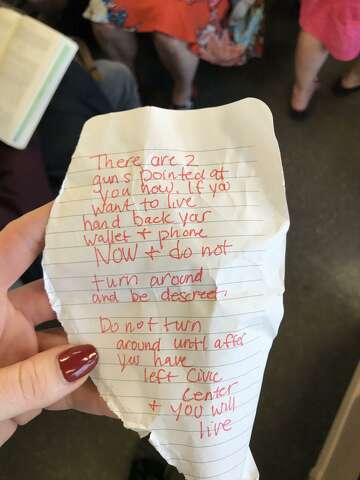 There are 2
guns pointed at
you now. If you
want to live
hand back your
wallet + phone
NOW + do not
turn around
and be descreet.
Do not turn
around until after
you have
left Civic
Center
+ you will
live